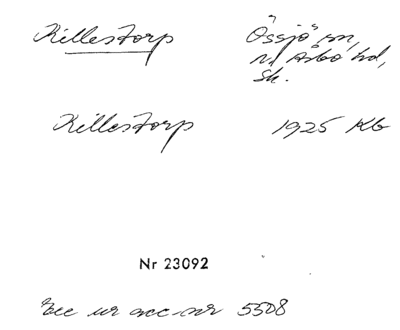 Killestorp Össjö sn,
n Åsbo hd,
Sk.
Killestorp 1925 Kb
Nr 23092
Exc ur acc-nr 5508